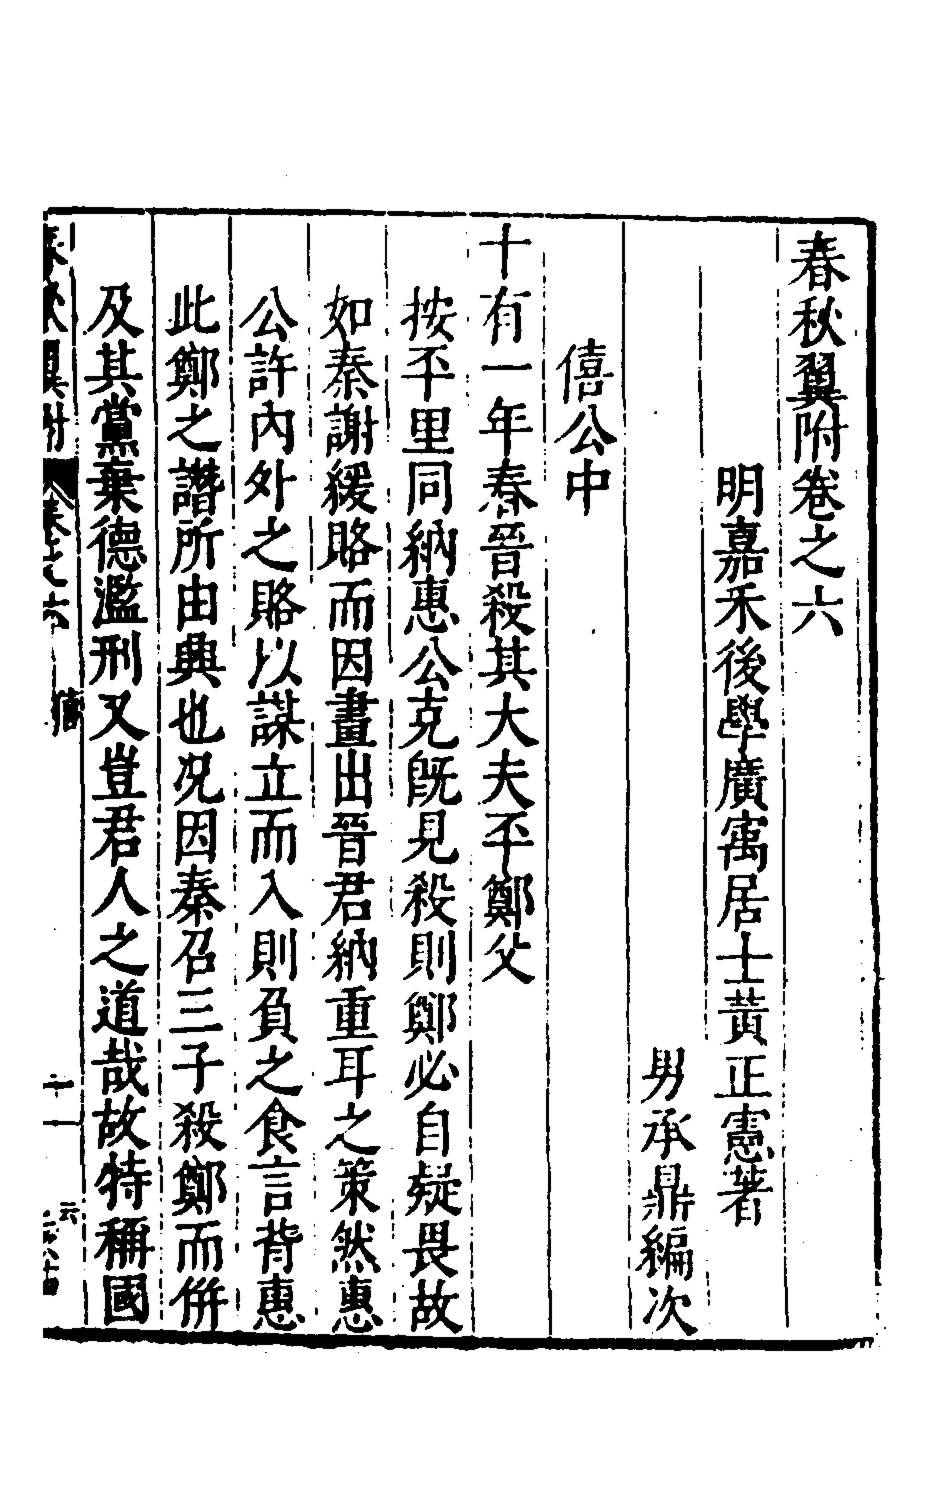 春秋翼附卷之六
明嘉禾後學廣寓居士黃正憲著
男承鼎編次
僖公中
十有一年春晉殺其大夫㔻鄭父
按㔻里同納惠公克旣見殺則鄭必自疑畏故
如秦謝緩賂而因畫出晉君納重耳之策然惠
公許內外之賂以謀立而入則負之食言背惠
此鄭之譖所由興也况因秦召三子殺鄭而倂
及其黨棄德濫刑又豈君人之道哉故特稱國
春秋翼附
卷之六
僖
十一